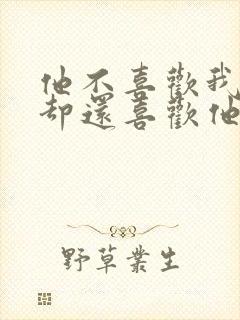 他不喜歡我
却還喜歡他
野草叢生